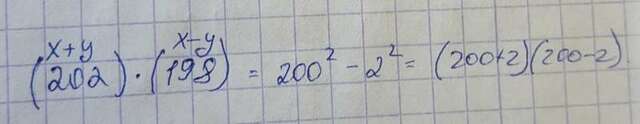 x+y x-y
(202)·(198) = 200² - 2² = (200+2)(200-2)